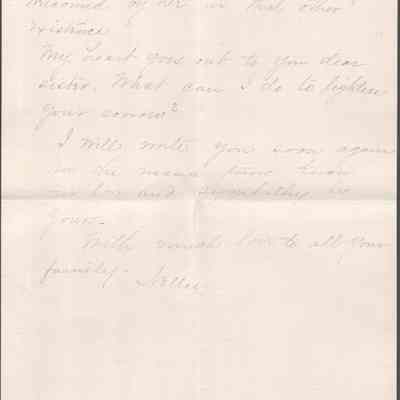 welcomed by her in that other
existence
My heart goes out to you dear
sister. What can I do to lighten
your sorrow?
I will write you soon again
in the mean time know
my love and sympathy is
yours.
With much love to all your
family.